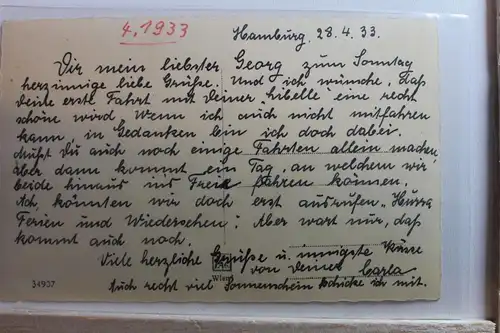 4.1933
Hamburg, 28.4.33.
Dir mein liebster Georg zum Sonntag
herzinnige liebe Grüße. Und ich wünsche, daß
Deine erste Fahrt mit Deiner "Libelle" eine recht
schöne wird. Wenn ich auch nicht mitfahren
kann, in Gedanken bin ich doch dabei.
Mußt Du auch noch einige Fahrten allein machen,
aber dann kommt ein Tag, an welchem wir
beide hinaus ins Freie fahren können.
Ach, könnten wir doch erst ausrufen "Hurra
Ferien und Wiedersehen". Aber wart nur, daß
kommt auch noch.
Viele herzliche Grüße u. innigste Küsse
von Deiner Carla
Wien
34907
Auch recht viel Sonnenschein schicke ich mit.